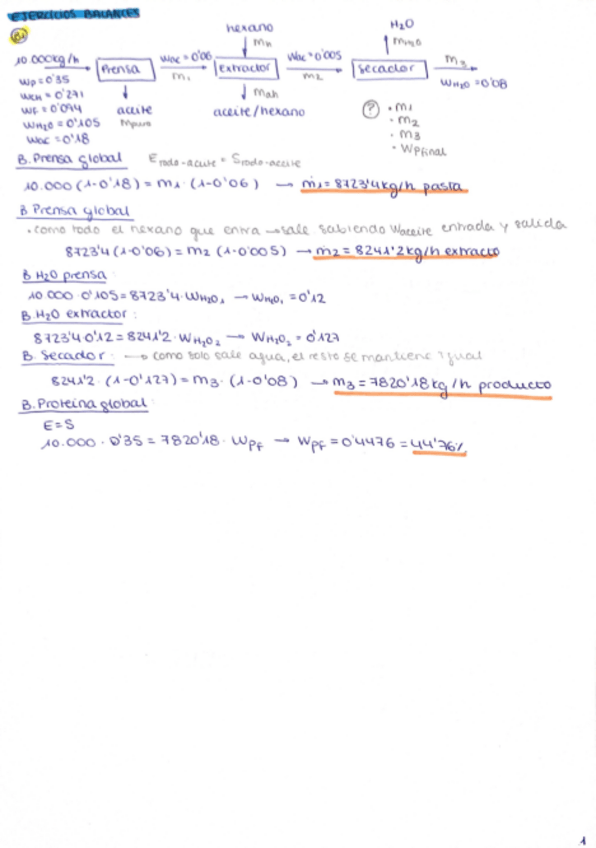 EJERCICIOS BALANCES
B1
hexano
H₂O
10.000kg/h
Prensa
Wac = 0'06
m₁
mh
Extractor
Wac = 0'005
m₂
mH₂O
Secador
m₃
WH₂O = 0'08
Wp = 0'35
WCH = 0'271
WF = 0'094
WH₂O = 0'105
Wac = 0'18
aceite
mah
aceite/hexano
? · m₁
· m₂
· m₃
· Wpfinal
B. Prensa global Etodo-aceite = Stodo-aceite
10.000 (1-0'18) = m₁ · (1-0'06) → ṁ₁ = 8723'4 kg/h pasta
B Prensa global
· como todo el hexano que entra → sale sabiendo Waceite entrada y salida
8723'4 (1-0'06) = m₂ (1-0'005) → ṁ₂ = 8241'2 kg/h extracto
B H₂O prensa
10.000 · 0'105 = 8723'4 · WH₂O₁ → WH₂O₁ = 0'12
B. H₂O extractor :
8723'4 · 0'12 = 8241'2 · WH₂O₂ → WH₂O₂ = 0'127
B. Secador : → como solo sale agua, el resto se mantiene igual
8241'2 · (1-0'127) = m₃ · (1-0'08) → m₃ = 7820'18 kg/h producto
B. Proteína global :
E = S
10.000 · 0'35 = 7820'18 · Wpf → Wpf = 0'4476 = 44'76%
1